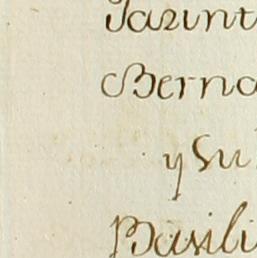 Jazint
Berna
y Su
Basili